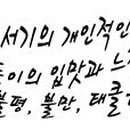 서기의 개인적인
둥이의 입맛과 느
불평, 불만, 태클